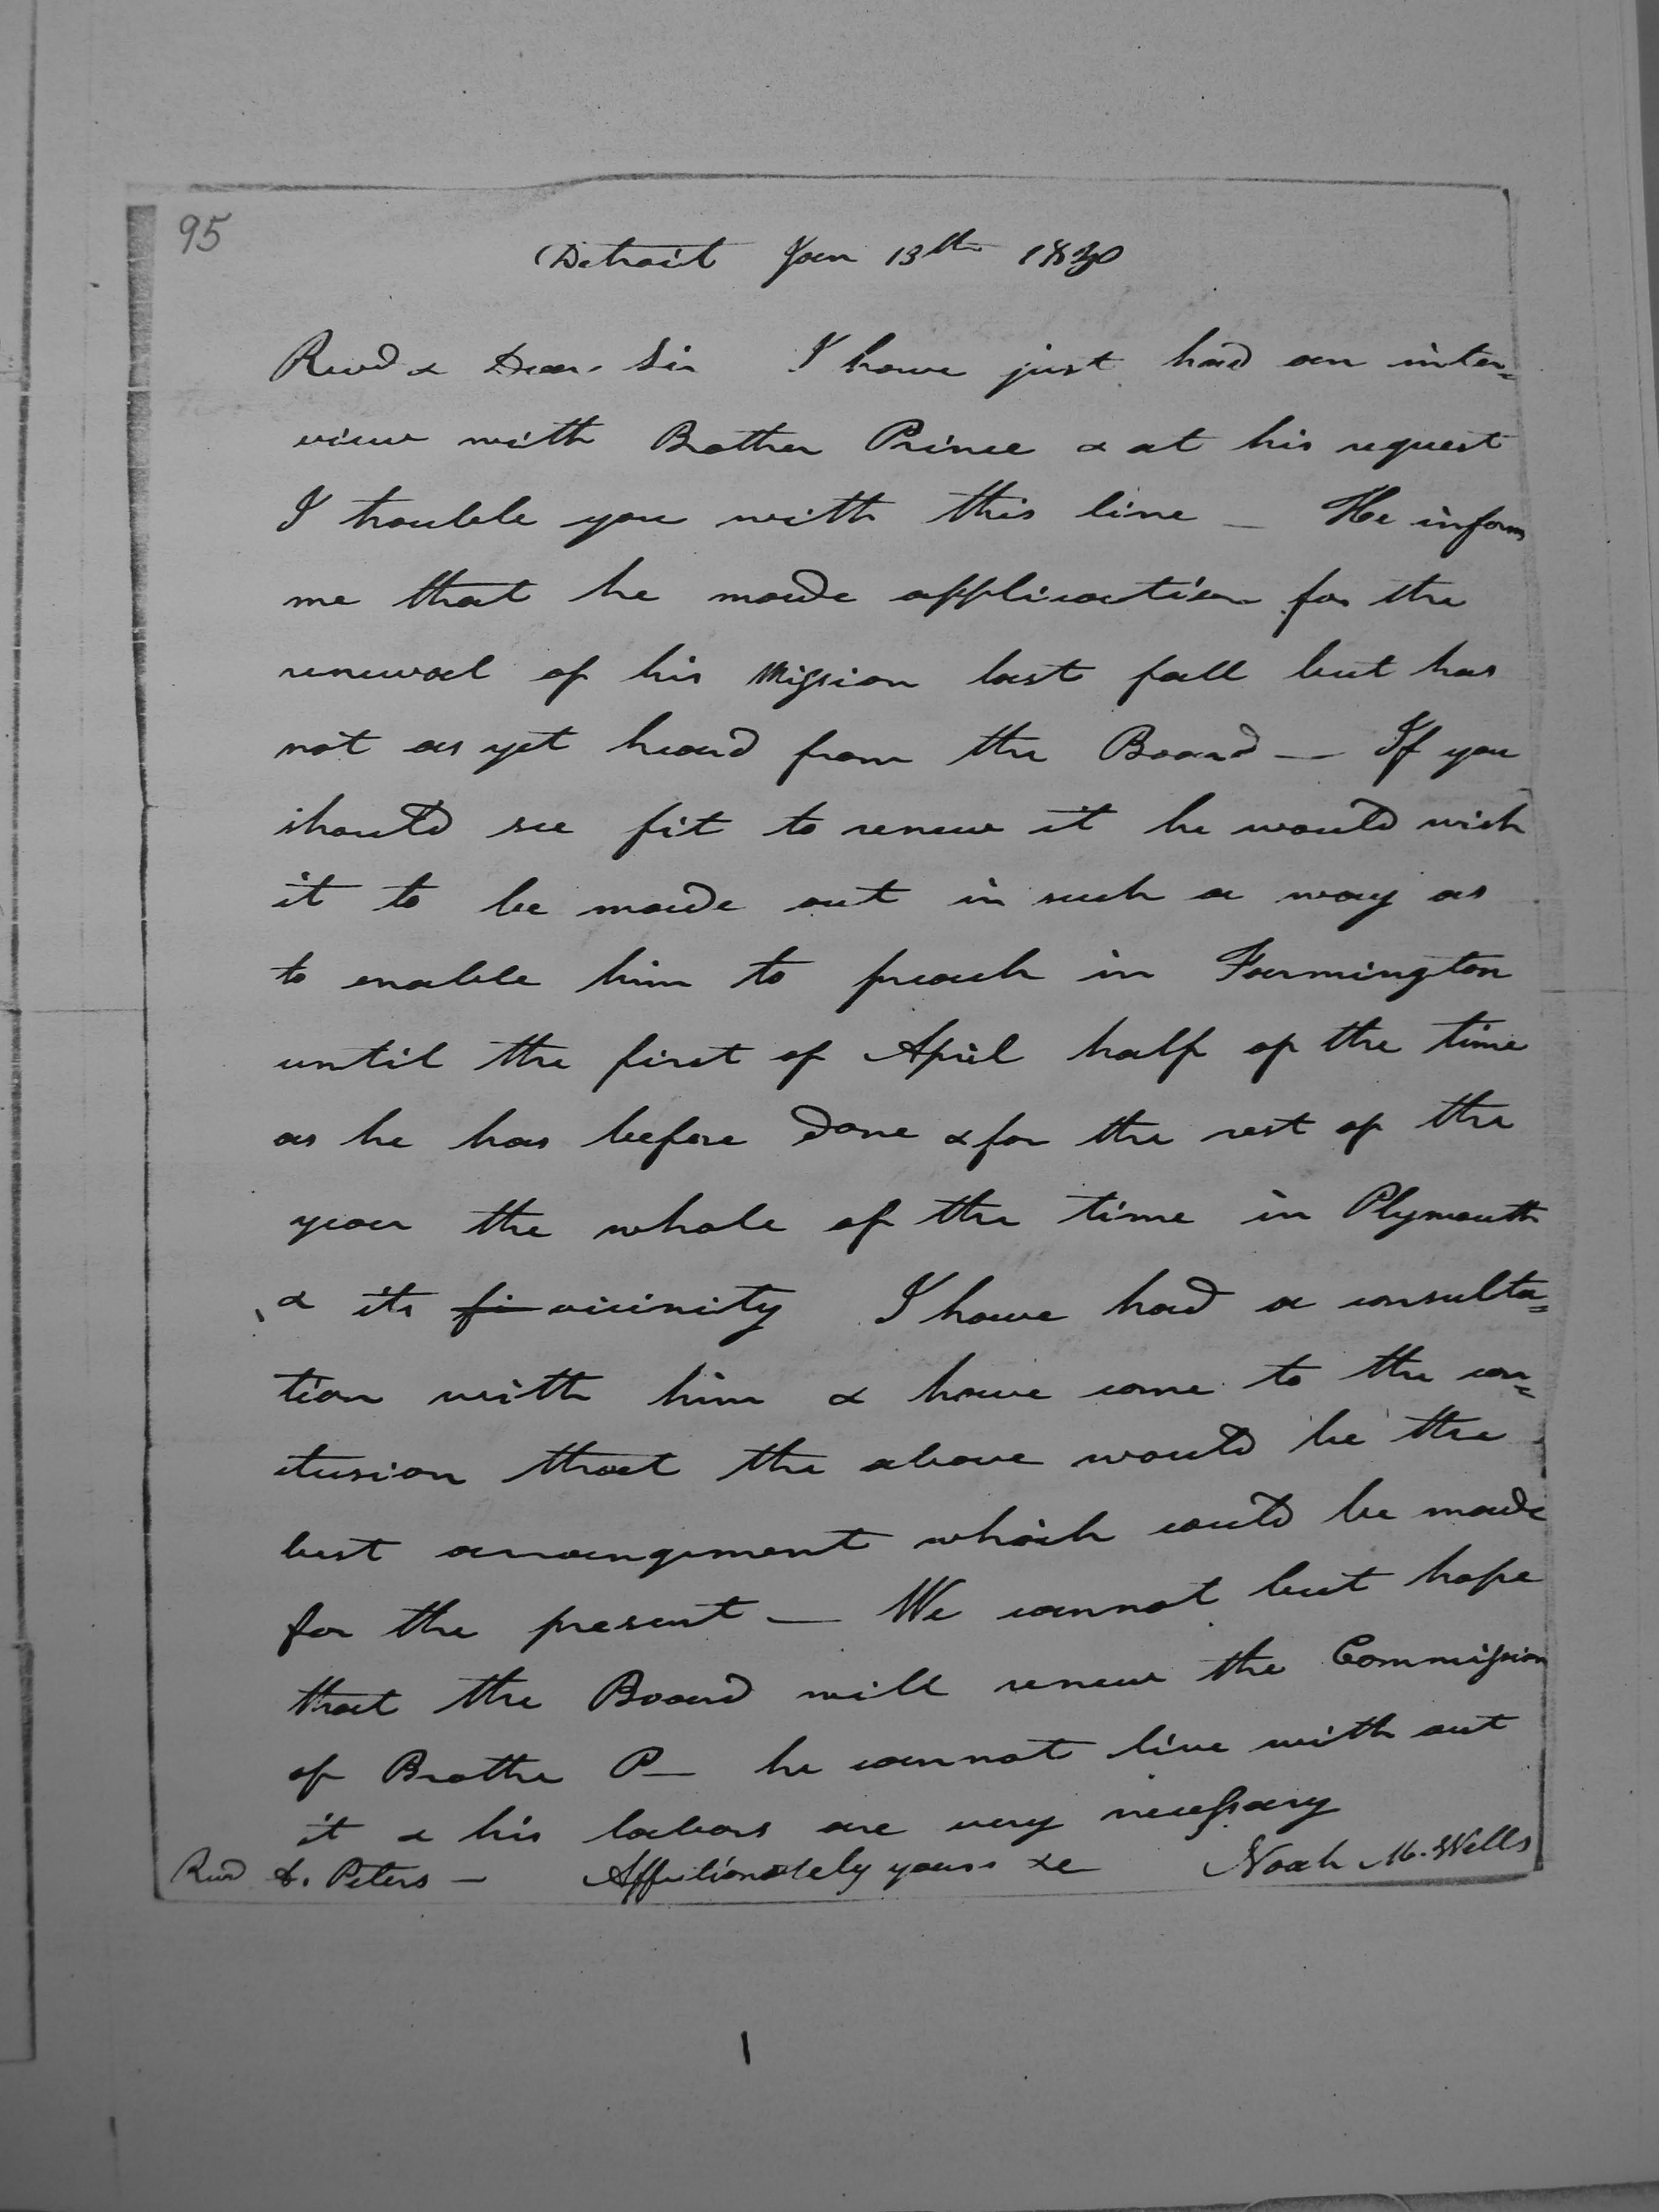 95
Detroit Jan 13th 1830
Revd & Dear Sir I have just had an inter=
view with Brother Prince & at his request
I trouble you with this line — He informs
me that he made application for the
renewal of his Mission last fall but has
not as yet heard from the Board — If you
should see fit to renew it he would wish
it to be made out in such a way as
to enable him to preach in Farmington
until the first of April half of the time
as he has before done & for the rest of the
year the whole of the time in Plymouth
& its fi vicinity I have had a consulta=
tion with him & have come to the con=
clusion that the above would be the
best arrangement which could be made
for the present — We cannot but hope
that the Board will renew the Commission
of Brothe P— he cannot live with out
it & his labors are very necessary
Revd A. Peters — Affectionately yours &c Noah M. Wells